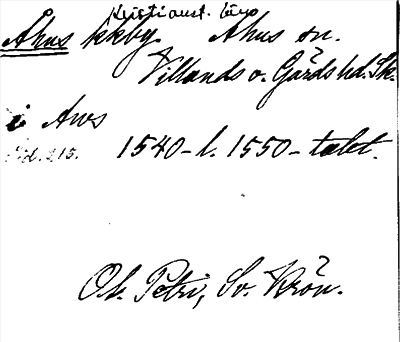 Kristianst. län
Åhus kkby. Åhus sn.
Villands o. Gärds hd. Sk.
i Aws
Sid. 215. 1540- l. 1550-talet.
O. Petri, Sv. Krön.